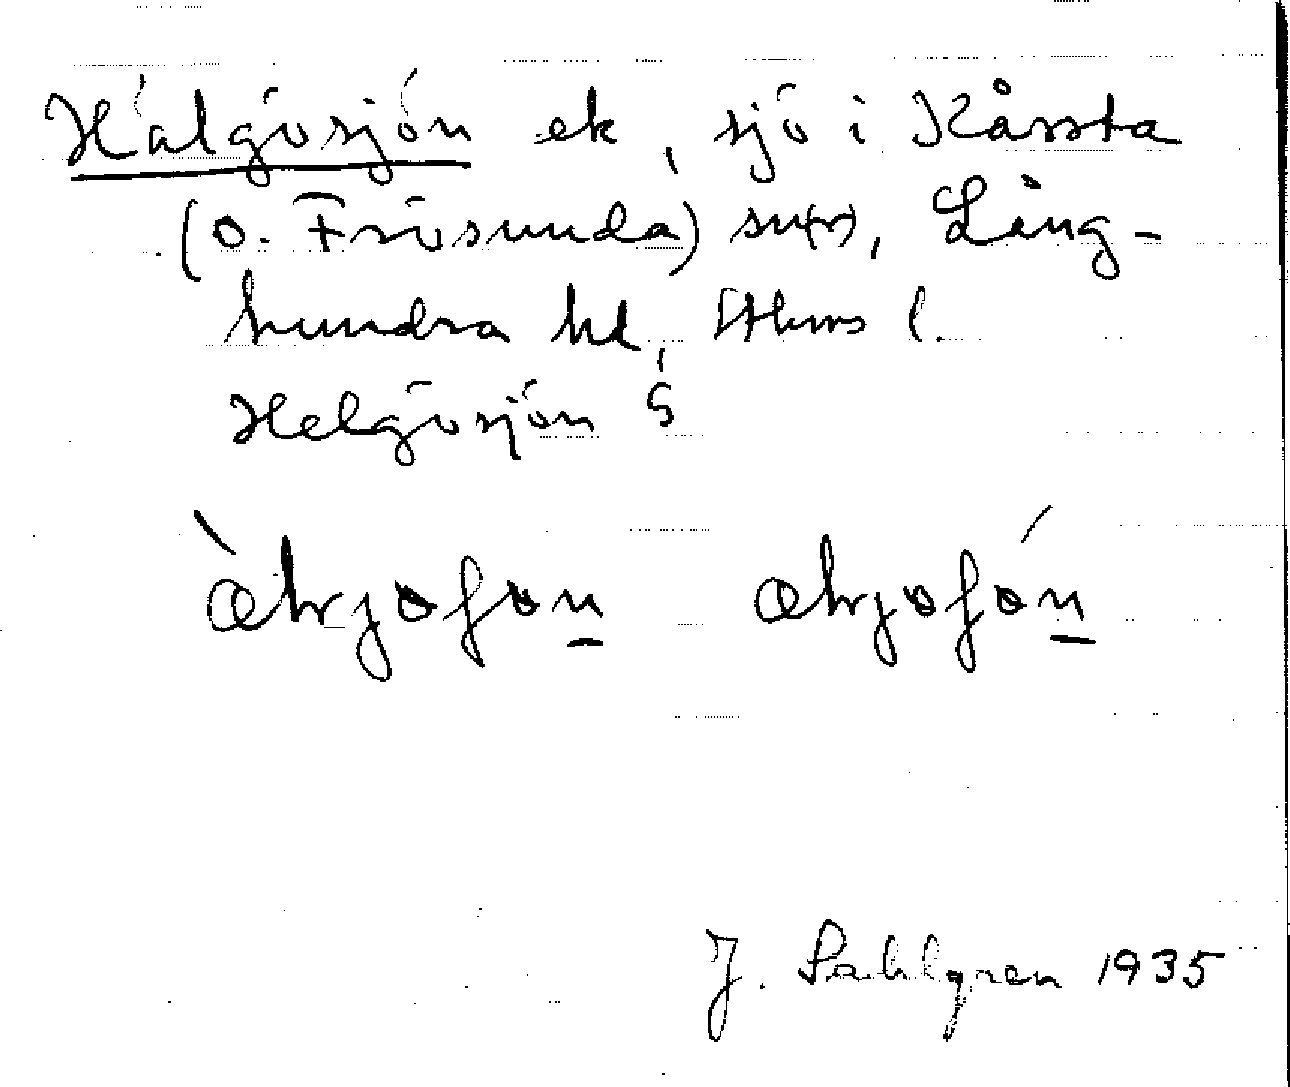 Hälgösjön ek, sjö i Kårsta
(o. Frösunda) sn(r), Lång-
hundra hd, Sthms l.
Helgösjön
J. Sahlgren 1935